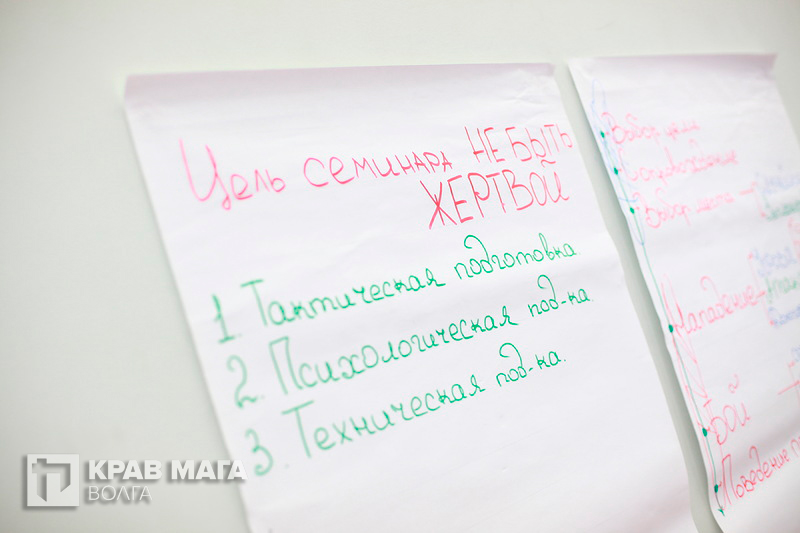 Цель семинара НЕ БЫТЬ
ЖЕРТВОЙ
1. Тактическая подготовка
2. Психологическая под-ка.
3. Техническая под-ка.
Выбор цели
Сопровождение
Выбор места
Нападение
Бой
Поведение
КРАВ МАГА
ВОЛГА